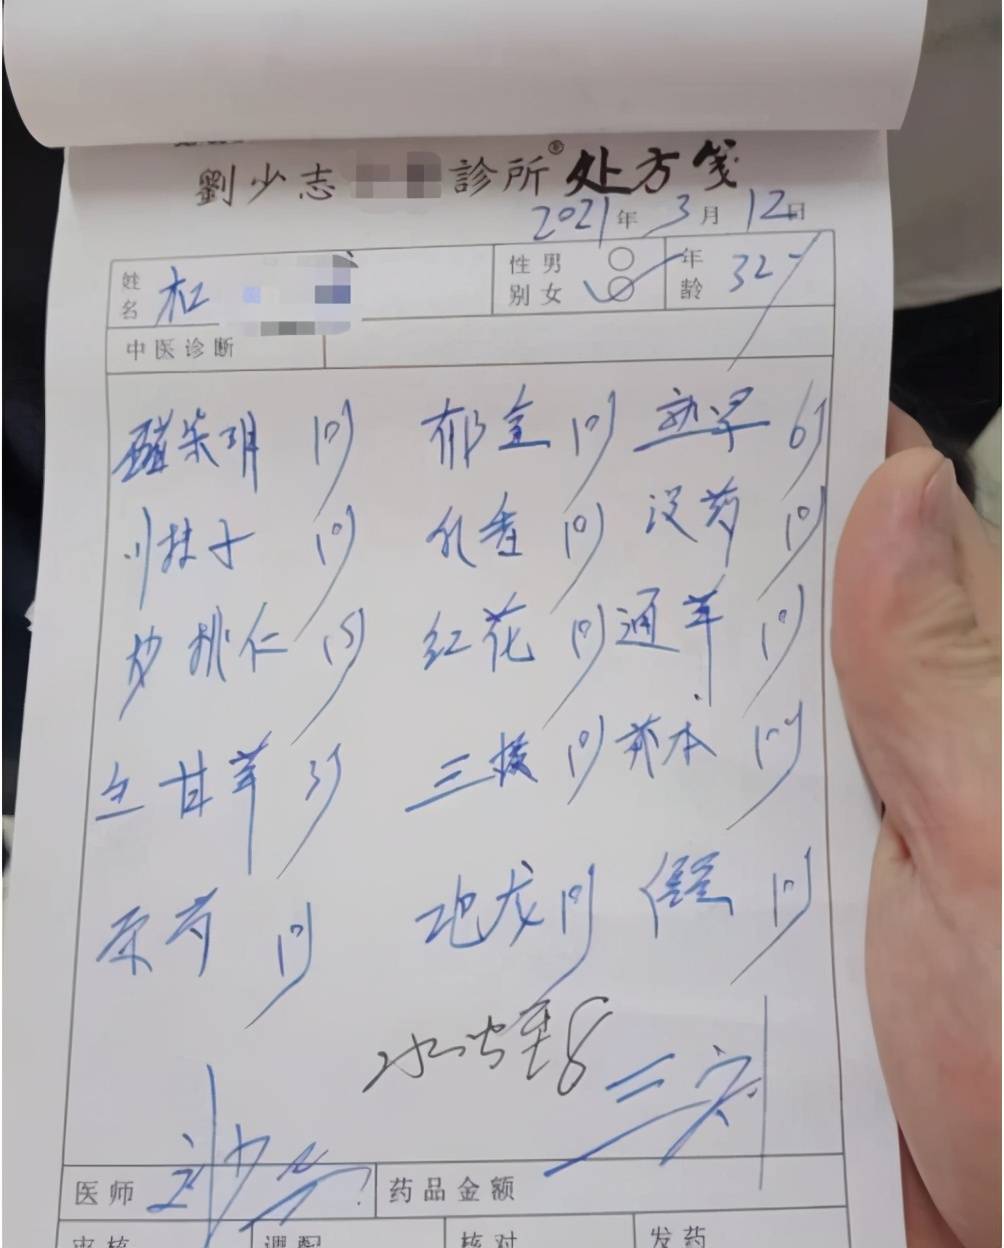 劉少志 診所®处方笺
2021年 3月 12日
姓名 杜 性别 男 女 年龄 32
中医诊断
醋柴胡 10 郁金 10 6
川 10 乳香 10 没药 10
炒桃仁 15 红花 10 通草 10
生甘草 3 三棱 10 莪术 10
赤芍 10 地龙 10 10
水蛭 8
三剂
医师 刘少志 药品金额
审核 调配 核对 发药